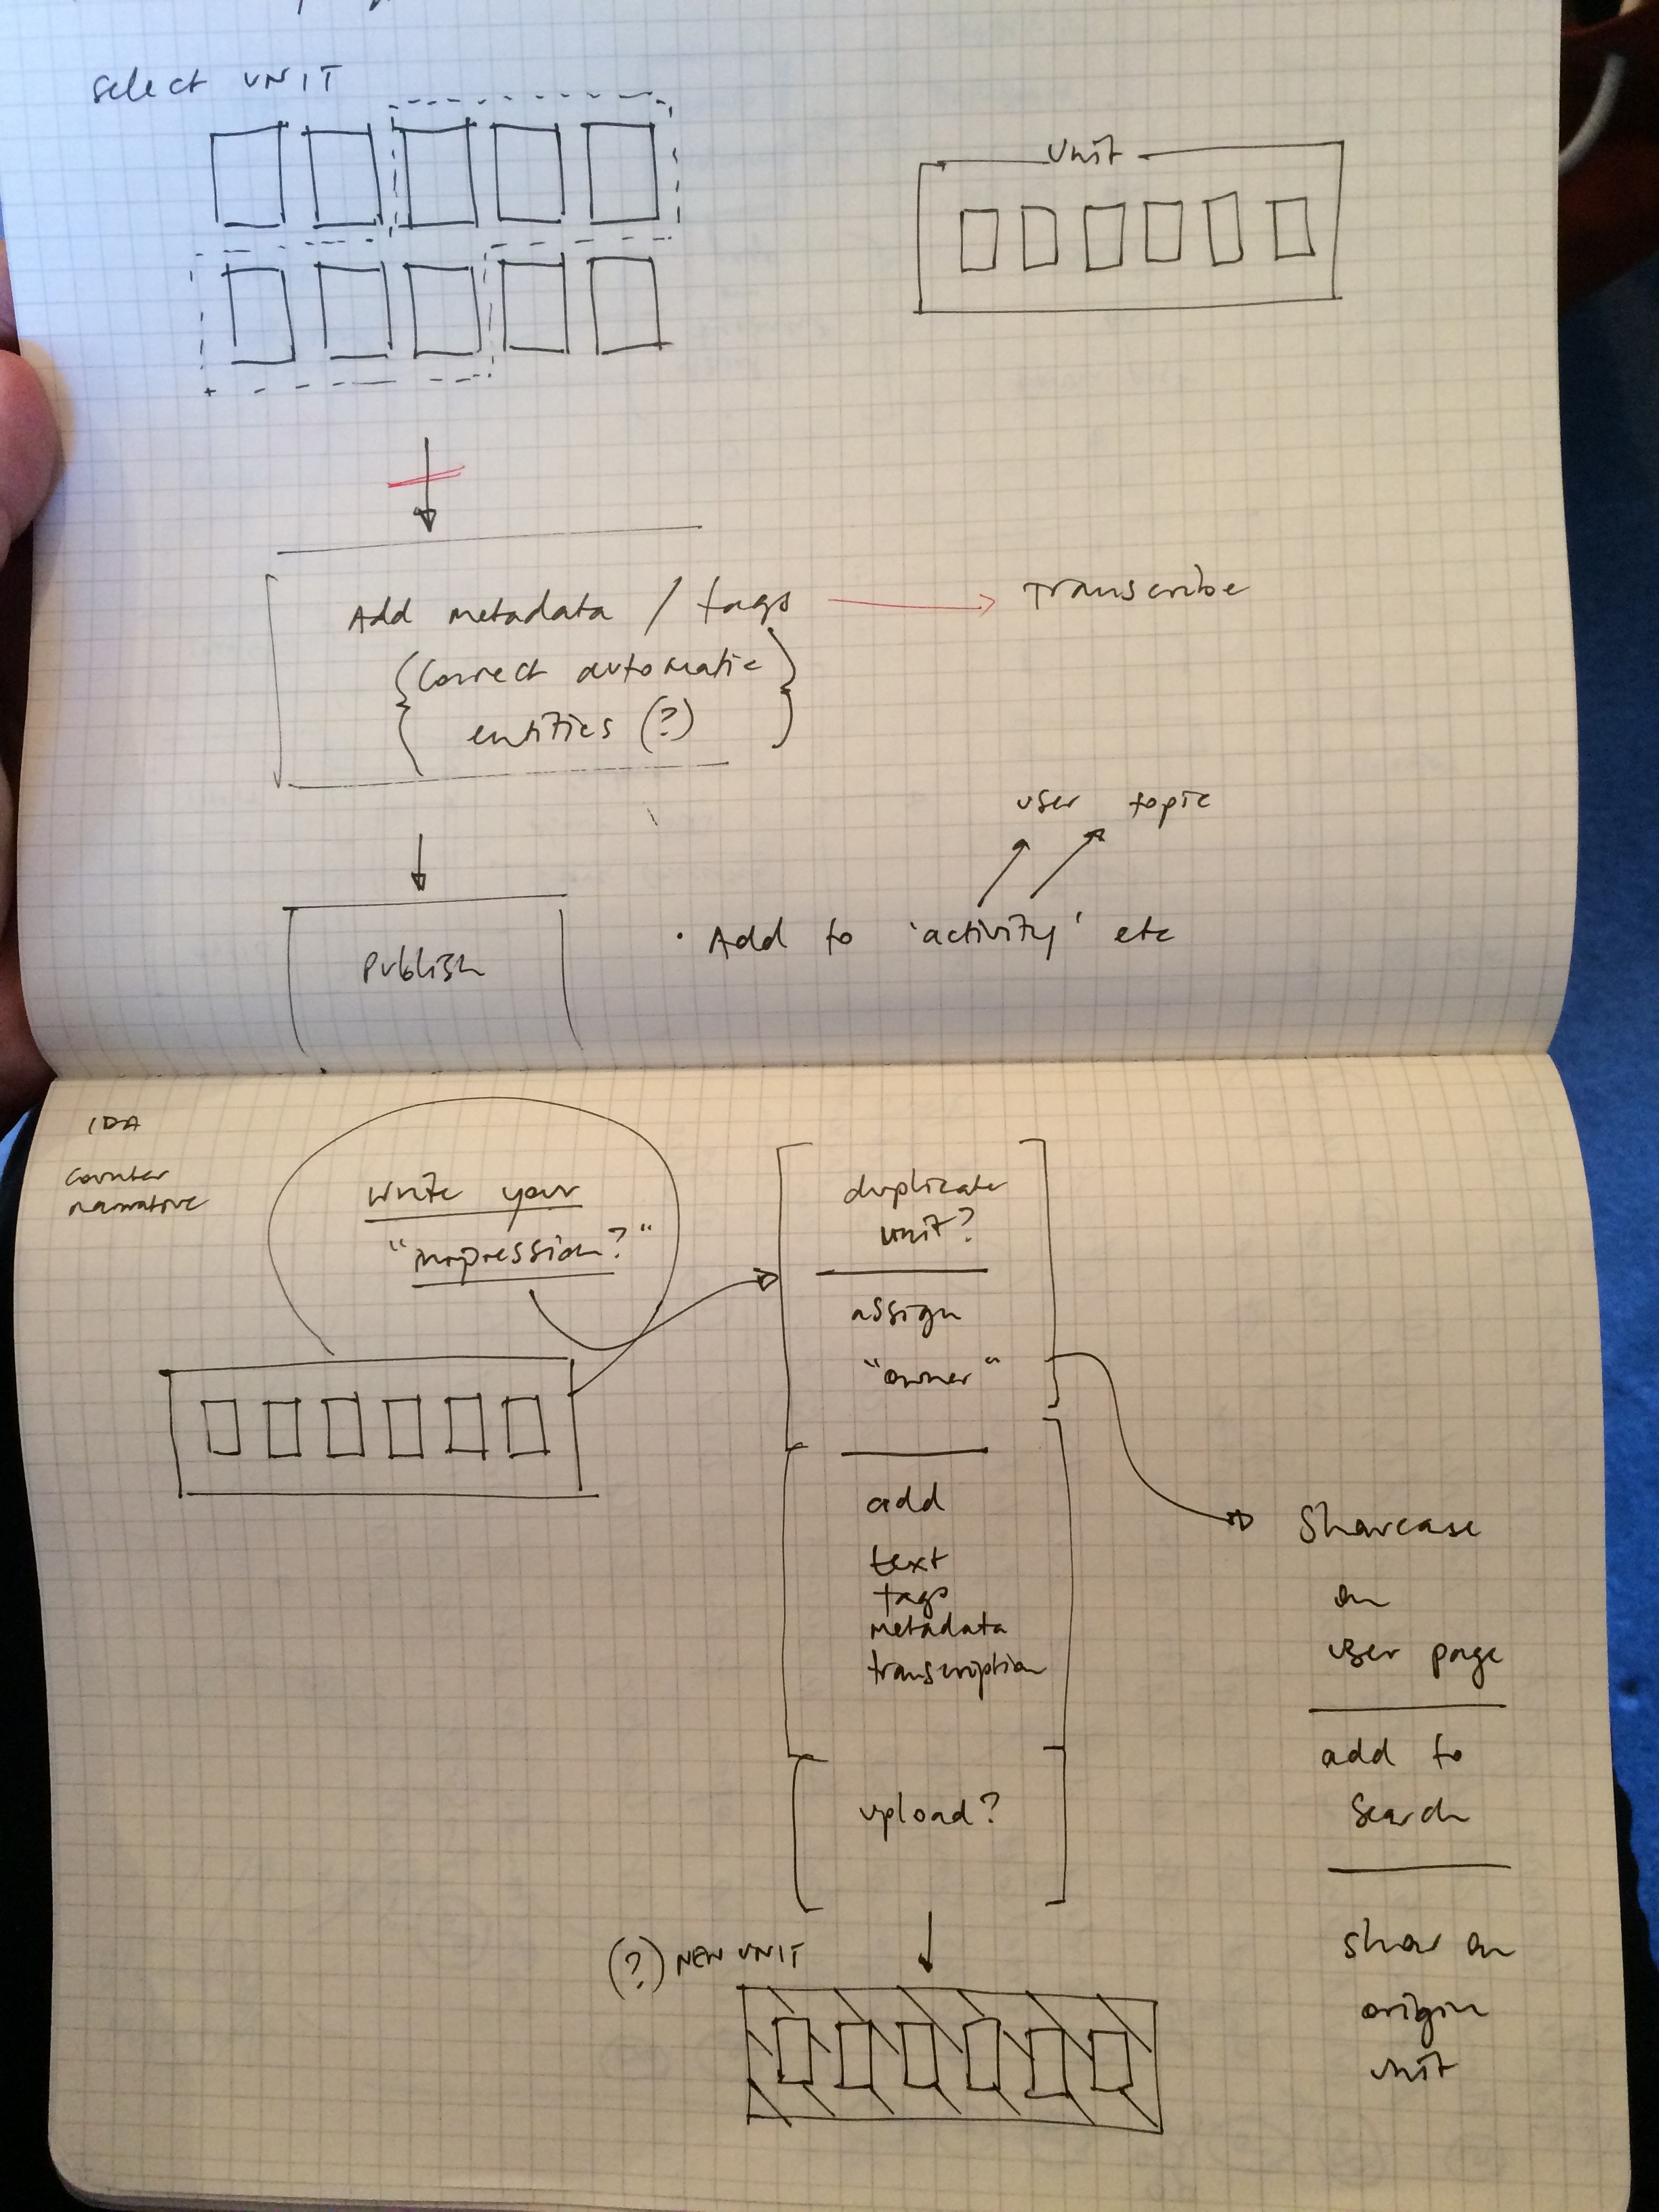 Select UNIT
Unit
Add metadata / tags
Transcribe
{Correct automatic
entities (?)}
user topic
Publish
· Add to 'activity' etc
IDA
counter
narrative
write your
"impression?"
duplicate
unit?
assign
"owner"
add
text
tags
metadata
transcription
upload?
Showcase
on
user page
add to
Search
show on
origin
unit
(?) NEW UNIT